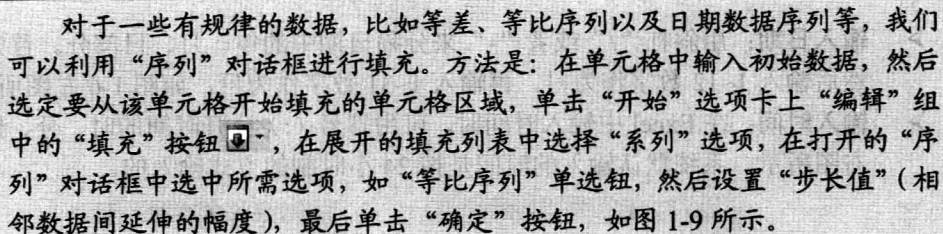 对于一些有规律的数据，比如等差、等比序列以及日期数据序列等，我们
可以利用“序列”对话框进行填充。方法是：在单元格中输入初始数据，然后
选定要从该单元格开始填充的单元格区域，单击“开始”选项卡上“编辑”组
中的“填充”按钮，在展开的填充列表中选择“系列”选项，在打开的“序
列”对话框中选中所需选项，如“等比序列”单选钮，然后设置“步长值”（相
邻数据间延伸的幅度），最后单击“确定”按钮，如图 1-9 所示。